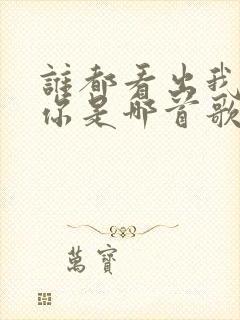 誰都看出我
你是哪首歌
萬寶